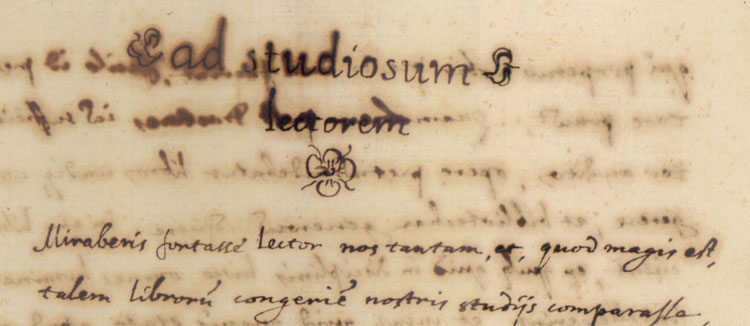 ad studiosum
lectorem
Miraberis fortassé lector nos tantam, et, quod magis est,
talem librorũ congeriẽ nostris studijs comparasse